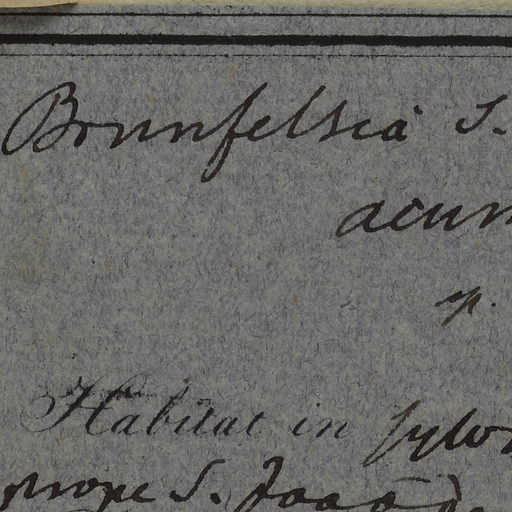 Brunfelsia S.
acum
sp.
Habitat in sylv
prope S. Joao de